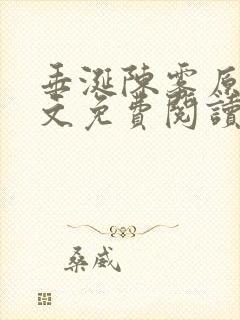 垂涎陳霧原
文免費閱讀
桑威